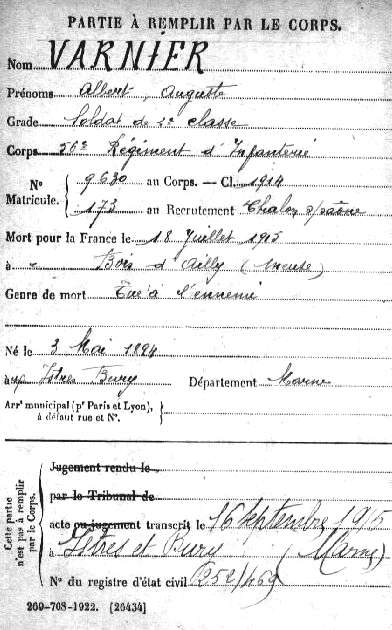 PARTIE À REMPLIR PAR LE CORPS.
Nom VARNIER
Prénoms Albert, Auguste
Grade Soldat de 2e classe
Corps 56e Régiment d'Infanterie
N° Matricule. 9630 au Corps. — Cl. 1914
173 au Recrutement Chalon s/saône
Mort pour la France le 18 Juillet 1915
à Bois d'Ailly (Meuse)
Genre de mort Tué à l'ennemi
Né le 3 Mai 1894
Istres Bury Département Marne
Arrt municipal (pr Paris et Lyon), à défaut rue et N°.
Cette partie n'est pas à remplir par le Corps.
Jugement rendu le
par le Tribunal de
acte ou jugement transcrit le 16 septembre 1915
à Istres et Bury (Marne)
N° du registre d'état civil 252/469
269-708-1922. [26434]